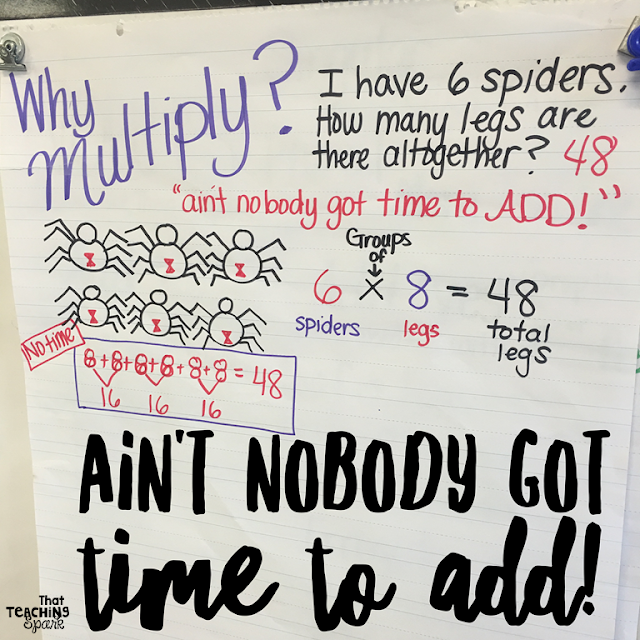 Why
Multiply?
I have 6 spiders.
How many legs are
there altogether? 48
"ain't nobody got time to ADD!"
Groups
of
6 x 8 = 48
spiders legs total
legs
No time
8+8+8+8+8+8 = 48
16 16 16
AiN'T NOBODY GOT
time to add!
That
TEACHiNg
Spark